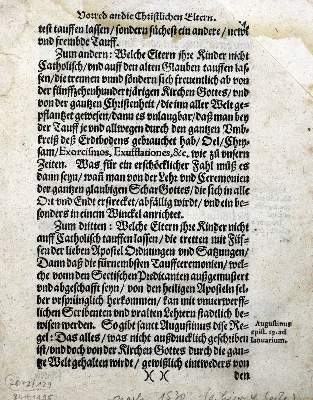 Vorred an die Christlichen Eltern.
test tauffen lassen / sondern süchest ein andere / newe
vnd frembde Tauff.
Zum andern: Welche Eltern jhre Kinder nicht
Catholisch / vnd auff den alten Glauben tauffen las-
sen / die trennen vnnd söndern sich freuentlich ab von
der fünffzehenhundertjärigen Kirchen Gottes / vnd
von der gantzen Christenheit / die inn aller Welt ge-
pflantzet gewesen / dann es vnlaugbar / daß man bey
der Tauff je vnd allwegen durch den gantzen Vmb-
kreiß deß Erdtbodens gebraucht hab / Oel / Chry-
sam / Exorcismos, Exufflationes, &c. wie zů vnsern
Zeiten. Was für ein erschöcklicher Fahl můß es
dann seyn / wañ man von der Lehr vnd Ceremonien
der gantzen glaubigen Schar Gottes / die sich in alle
Ort vnd Endt erstrecket / abfällig wirdt / vnd ein be-
sonders in einem Winckel anrichtet.
Zum dritten: Welche Eltern jhre Kinder nicht
auff Catholisch tauffen lassen / die tretten mit Füs-
sen der lieben Apostel Ordnungen vnd Satzungen /
Dann daß die fürnembsten Tauffceremonien / wel-
che vonn den Sectischen Predicanten außgemustert
vnd abgeschafft seyn / von den heiligen Aposteln sel-
ber vrsprünglich herkommen / kan mit vnuerwerff-
lichen Scribenten vnd vralten Lehrern stadtlich be-
wisen werden. So gibt sanct Augustinus dise Re-
gel: Das alles / was nicht außdrucklich geschriben
ist / vnd doch von der Kirchen Gottes durch die gan-
tze Welt gehalten wirdt / gewißlich eintweders von
)( )(
den
Augustinus
epist. 19. ad
Ianuarium.